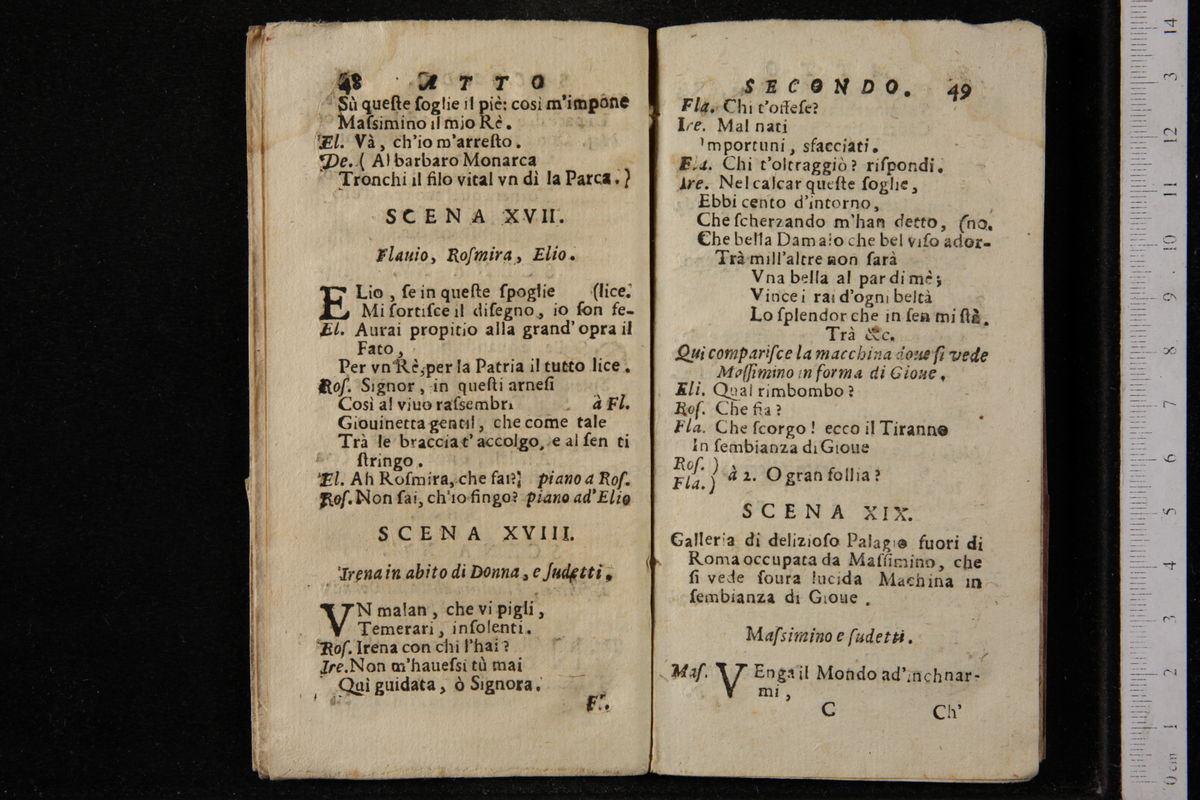 48 ATTO
Sù queſte ſoglie il piè: così m'impone
Maſsimino il mio Rè.
El. Và, ch'io m'arreſto.
De. ( Al barbaro Monarca
Tronchi il filo vital vn dì la Parca. )
SCENA XVII.
Flauio, Roſmira, Elio.
ELio, ſe in queſte ſpoglie (lice.
Mi ſortiſce il diſegno, io ſon fe-
El. Aurai propitio alla grand' opra il
Fato,
Per vn Rè, per la Patria il tutto lice.
Roſ. Signor, in queſti arneſi
Così al viuo raſsembri à Fl.
Giouinetta gentil, che come tale
Trà le braccia t' accolgo, e al ſen ti
ſtringo.
El. Ah Roſmira, che fai? piano a Roſ.
Roſ. Non ſai, ch'io fingo? piano ad'Elio
SCENA XVIII.
Irena in abito di Donna, e ſudetti.
VN malan, che vi pigli,
Temerari, inſolenti.
Roſ. Irena con chi l'hai?
Ire. Non m'haueſsi tù mai
Quì guidata, ò Signora.
SECONDO. 49
Fla. Chi t'offeſe?
Ire. Mal nati
Importuni, sfacciati.
Fla. Chi t'oltraggiò? riſpondi.
Ire. Nel calcar queſte ſoglie,
Ebbi cento d'intorno,
Che ſcherzando m'han detto, (no.
Che bella Dama, o che bel viſo ador-
Trà mill'altre non ſarà
Vna bella al par di mè;
Vince i rai d'ogni beltà
Lo ſplendor che in ſen mi ſtà.
Trà &c.
Qui compariſce la macchina doue ſi vede
Maſſimino in forma di Gioue.
Eli. Qual rimbombo?
Roſ. Che fia?
Fla. Che ſcorgo! ecco il Tiranno
In ſembianza di Gioue
Roſ. )
Fla. ) à 2. O gran follia?
SCENA XIX.
Galleria di delizioſo Palagio fuori di
Roma occupata da Maſſimino, che
ſi vede ſoura lucida Machina in
ſembianza di Gioue.
Maſsimino e ſudetti.
Maſ. VEnga il Mondo ad'inchinar-
mi,
C Ch'
14
13
12
11
10
9
8
7
6
5
4
3
2
1
0 cm